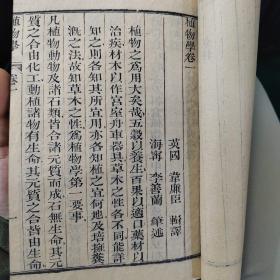 植物學卷一
英國 韋廉臣 輯譯
海寧 李善蘭 筆述
植物之爲用大矣哉五穀以養生百果以適口藥材以
治疾材木以作宮室舟車器具草木之性各不同能詳
知之則各知其所宜用亦各知植之宜何地及培擁灌
漑之法故知草木之性爲植物學第一要事
凡植物動物及諸石類皆合諸元質而成石無生命其元
質之合由化工動植諸物有生命其元質之合皆由生命
植物學
卷一
一